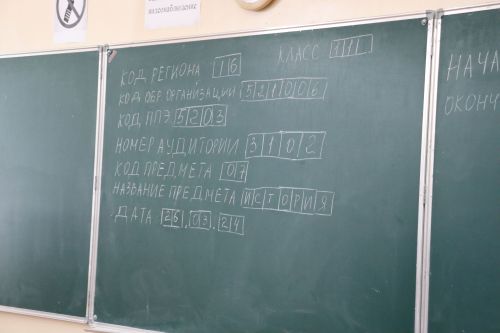 видеонаблюдение
КОД РЕГИОНА 16 КЛАСС 11
КОД ОБР ОРГАНИЗАЦИИ 521006
КОД ППЭ 5203
НОМЕР АУДИТОРИИ 3102
КОД ПРЕДМЕТА 07
НАЗВАНИЕ ПРЕДМЕТА ИСТОРИЯ
ДАТА 26.03.24
НАЧА
ОКОНЧ